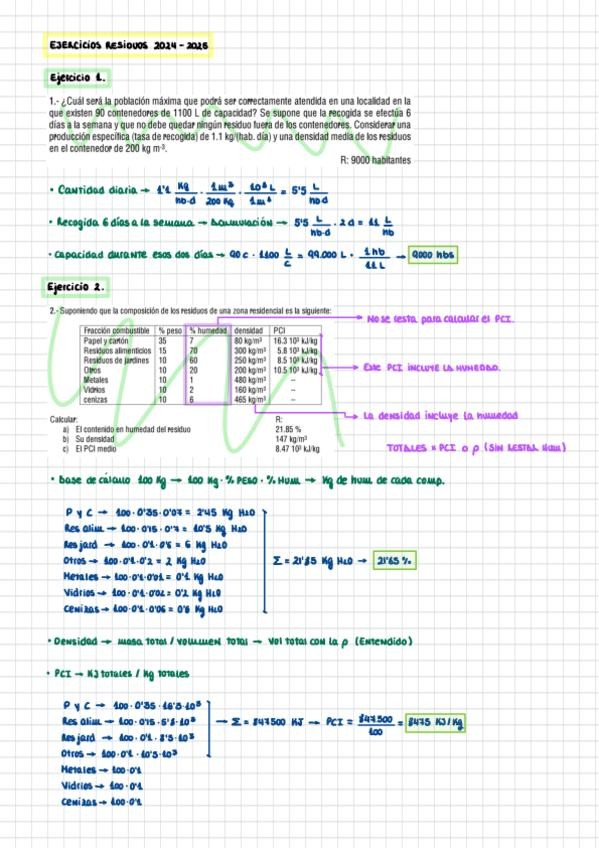 EJERCICIOS RESIDUOS 2024-2025
Ejercicio 1.
1.- ¿Cuál será la población máxima que podrá ser correctamente atendida en una localidad en la
que existen 90 contenedores de 1100 L de capacidad? Se supone que la recogida se efectúa 6
días a la semana y que no debe quedar ningún residuo fuera de los contenedores. Considerar una
producción específica (tasa de recogida) de 1.1 kg/(hab. día) y una densidad media de los residuos
en el contenedor de 200 kg m-³.
R: 9000 habitantes
• Cantidad diaria → 1'1 Kg/hb·d · 1m³/200 Kg · 10³L/1m³ = 5'5 L/hb·d
• Recogida 6 días a la semana → Acumulación → 5'5 L/hb·d · 2d = 11 L/hb
• Capacidad durante esos dos días → 90c · 1100 L/c = 99.000 L · 1hb/11L → 9000 hbs
Ejercicio 2.
2.- Suponiendo que la composición de los residuos de una zona residencial es la siguiente:
No se resta para calcular el PCI.
Fracción combustible % peso % humedad densidad PCI
Papel y cartón 35 7 80 kg/m³ 16.3 10³ kJ/kg
Residuos alimenticios 15 70 300 kg/m³ 5.8 10³ kJ/kg
Residuos de jardines 10 60 250 kg/m³ 8.5 10³ kJ/kg
Otros 10 20 200 kg/m³ 10.5 10³ kJ/kg
Este PCI INCLUYE LA HUMEDAD.
Metales 10 1 480 kg/m³ --
Vidrios 10 2 160 kg/m³ --
cenizas 10 6 465 kg/m³ --
La densidad incluye la humedad
Calcular: R:
a) El contenido en humedad del residuo 21.85 %
b) Su densidad 147 kg/m³
c) El PCI medio 8.47 10³ kJ/kg
TOTALES = PCI o ρ (SIN RESTAR HUM)
• Base de cálculo 100 Kg → 100 Kg · % PESO · % HUM → Kg de hum de cada comp.
P y C → 100·0'35·0'07 = 2'45 Kg H₂O
Res alim → 100·0'15·0'7 = 10'5 Kg H₂O
Res jard → 100·0'1·0'6 = 6 Kg H₂O
Otros → 100·0'1·0'2 = 2 Kg H₂O
Σ = 21'85 Kg H₂O → 21'85 %
Metales → 100·0'1·0'01 = 0'1 Kg H₂O
Vidrios → 100·0'1·0'02 = 0'2 Kg H₂O
Cenizas → 100·0'1·0'06 = 0'6 Kg H₂O
• Densidad → masa total / volumen total → Vol total con la ρ (Entendido)
• PCI → KJ totales / Kg totales
P y C → 100·0'35·16'3·10³
Res alim → 100·0'15·5'8·10³
→ Σ = 847500 KJ → PCI = 847500/100 = 8475 KJ/Kg
Res jard → 100·0'1·8'5·10³
Otros → 100·0'1·10'5·10³
Metales → 100·0'1
Vidrios → 100·0'1
Cenizas → 100·0'1